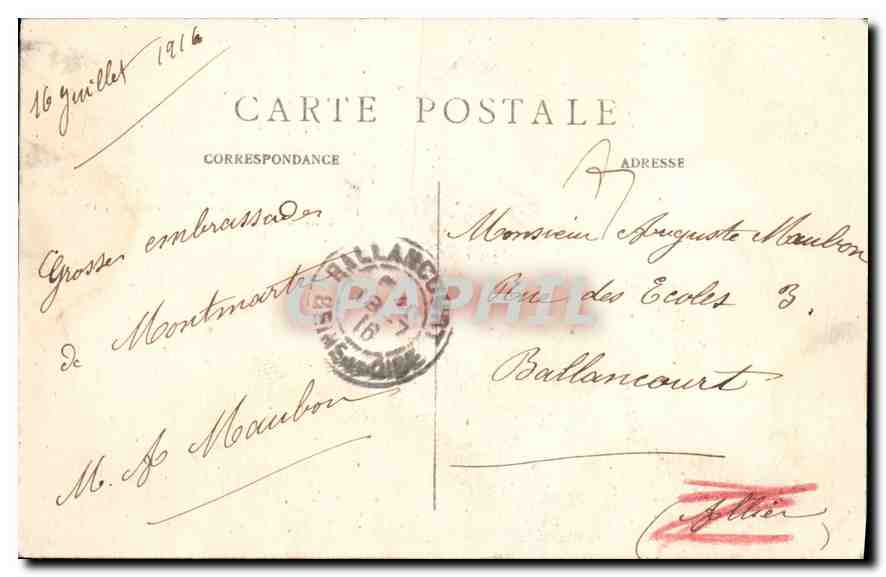 16 Juillet 1916
CARTE POSTALE
CORRESPONDANCE
ADRESSE
Grosses embrassades
de Montmartre
M. A Maubon
Monsieur Auguste Maubon
Rue des Ecoles 3.
Ballancourt
(Allier)
BALLANCOURT
SEINE-ET-OISE
18 -7
16
CPAPHIL